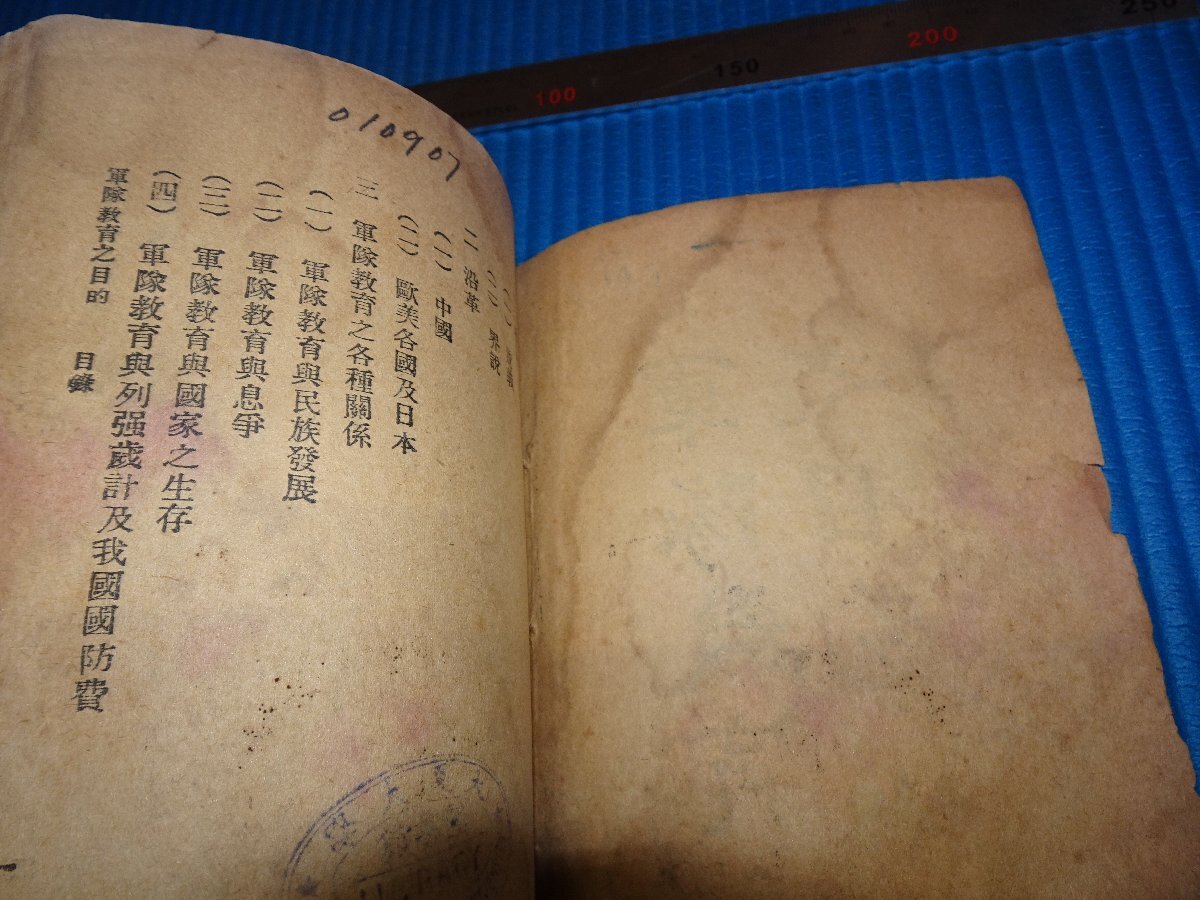 010907
(二) 界說
二 沿革
(一) 中國
(二) 歐美各國及日本
三 軍隊教育之各種關係
(一) 軍隊教育與民族發展
(二) 軍隊教育與息爭
(三) 軍隊教育與國家之生存
(四) 軍隊教育與列强歲計及我國國防費
軍隊教育之目的 目錄
一
100
150
200
250